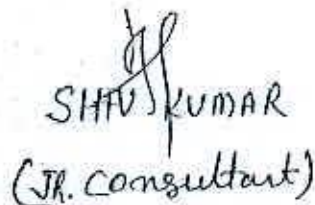 SHIV KUMAR
(JR. Consultant)